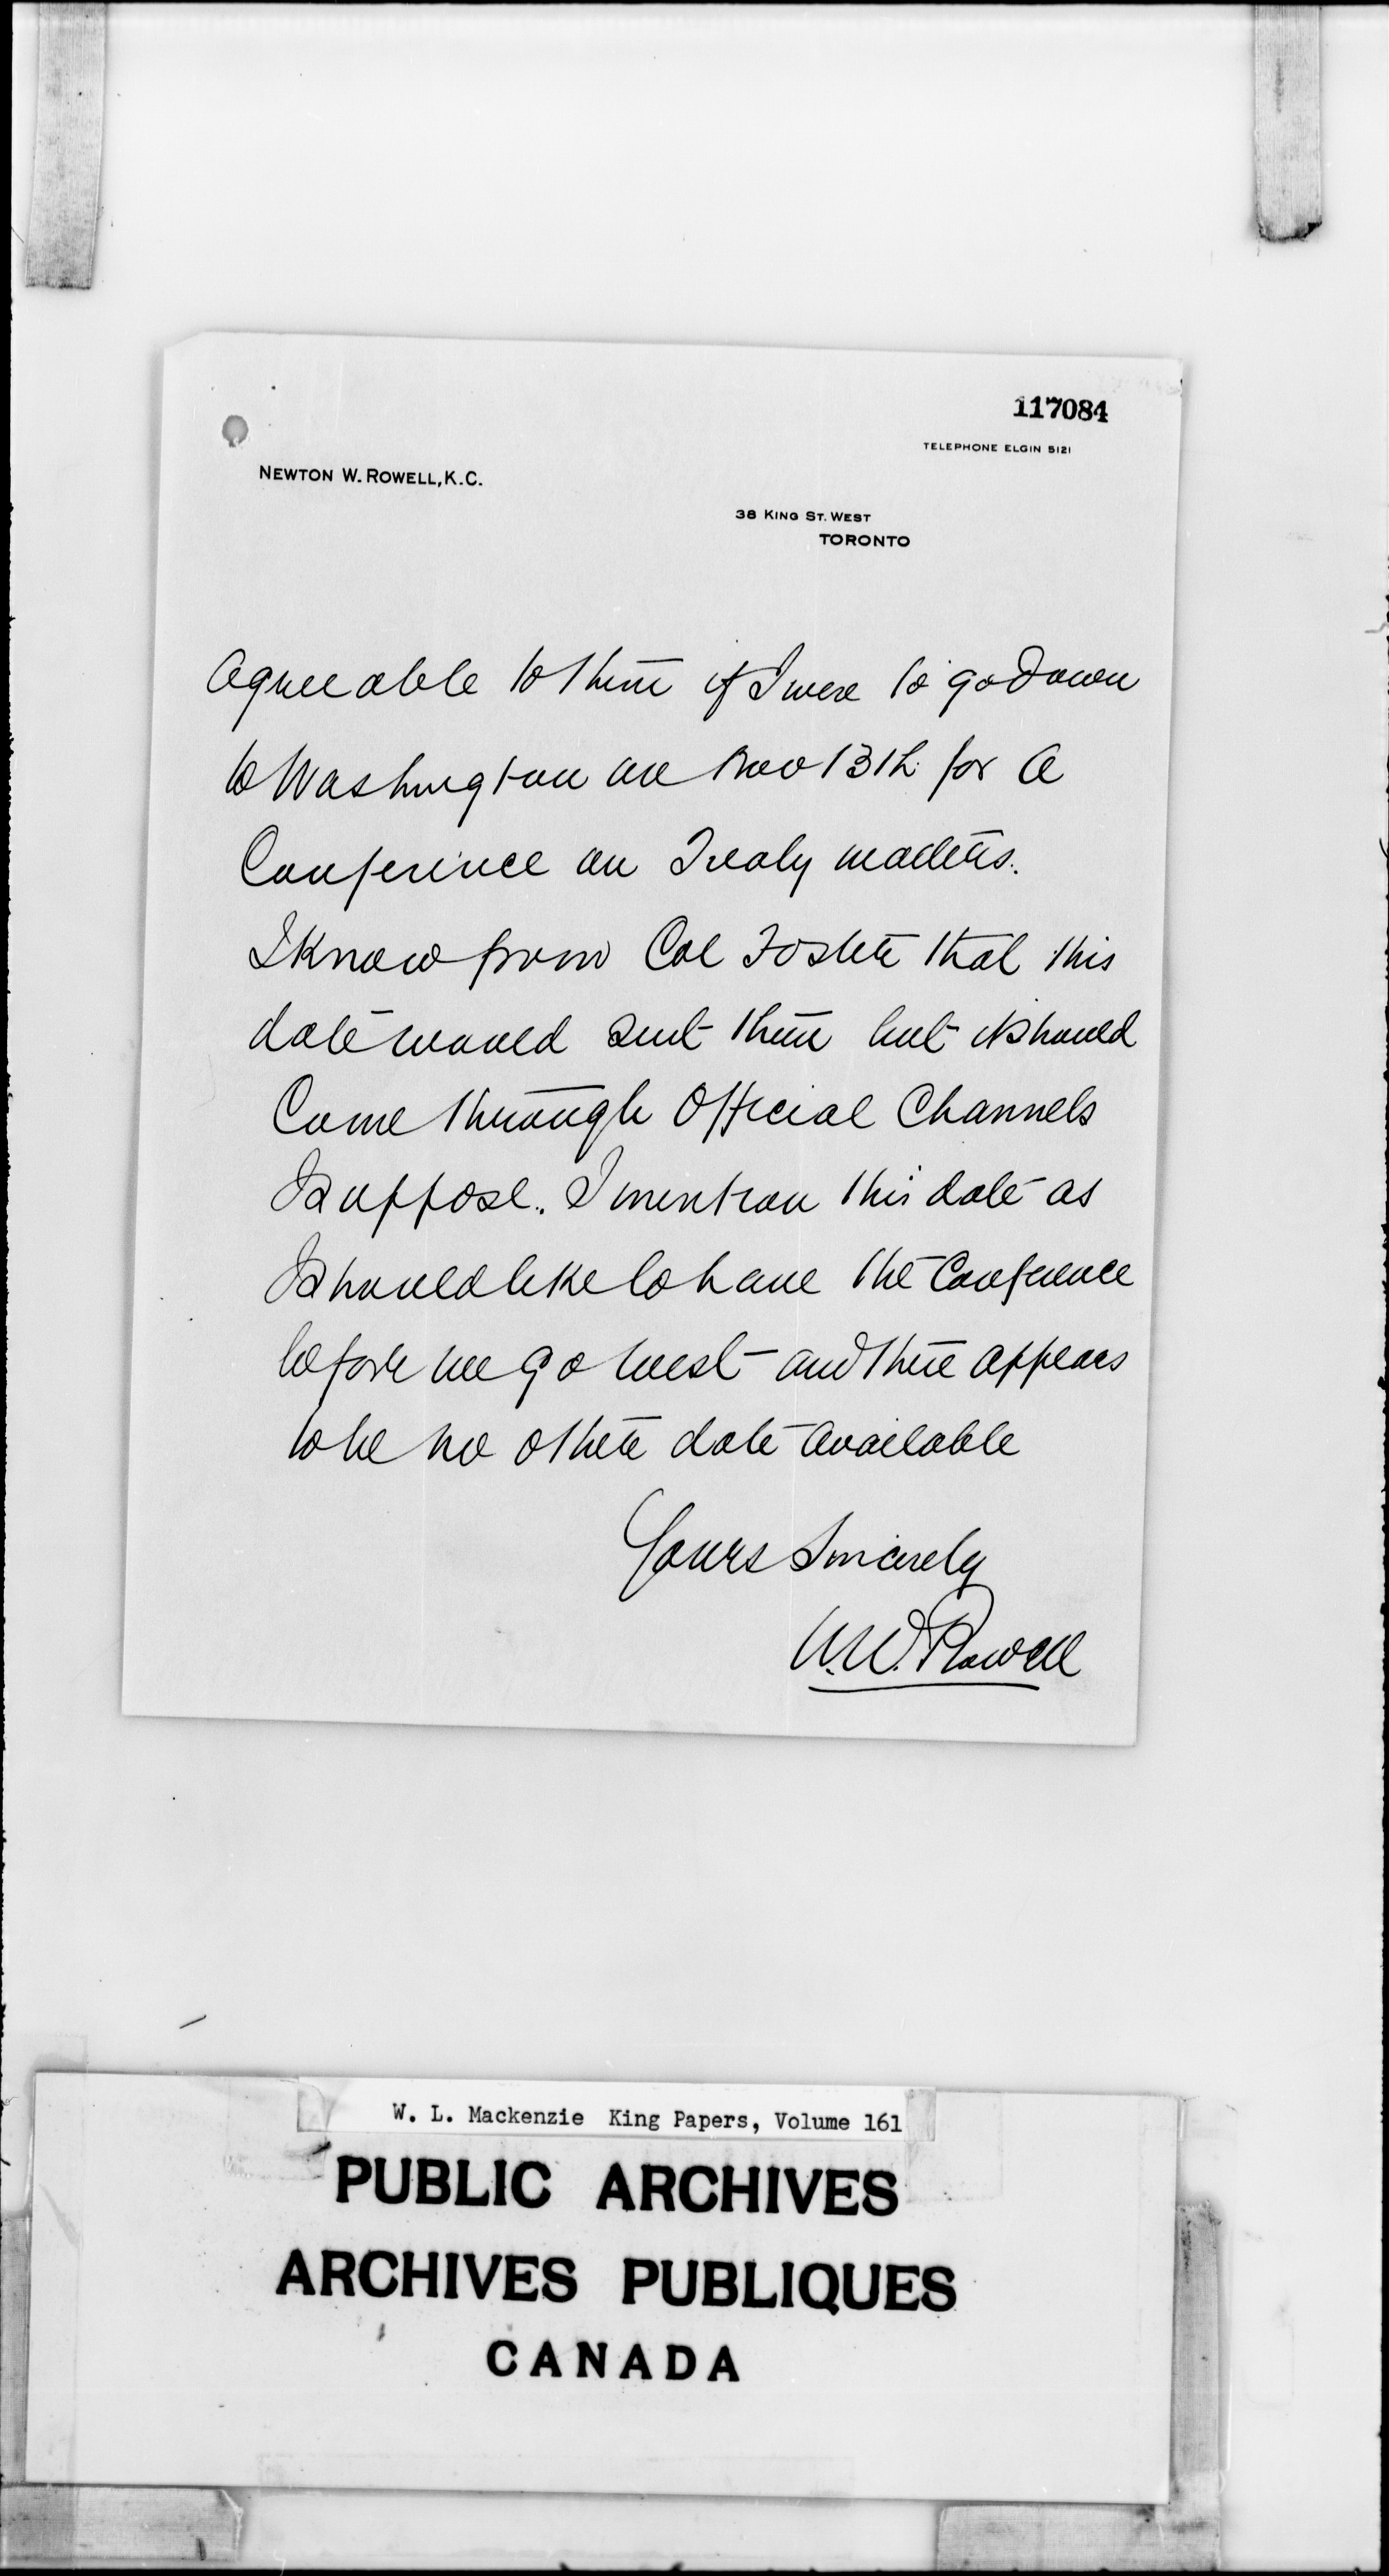 117084
TELEPHONE ELGIN 5121
NEWTON W. ROWELL, K.C.
38 KING ST. WEST
TORONTO
agreeable to them if I were to go down
to Washington on Nov 13th for a
Conference on Treaty matters.
I know from Col Foster that this
date would suit them but it should
Come through Official Channels
I suppose. I mention this date as
I should like to have the Conference
before we go west and there appears
to be no other date available
Yours Sincerely
N.W. Rowell
W. L. Mackenzie King Papers, Volume 161
PUBLIC ARCHIVES
ARCHIVES PUBLIQUES
CANADA